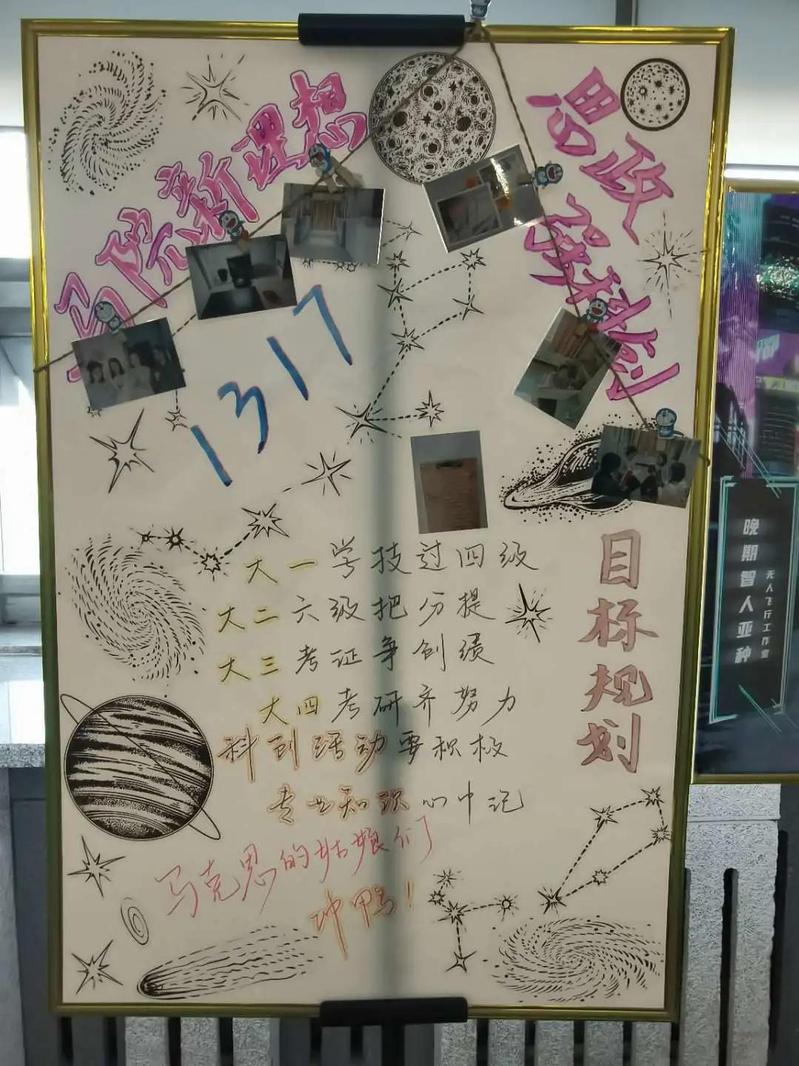 马院新理想
思政强科创
1317
目标规划
大一学技过四级
大二六级把分提
大三考证争创绩
大四考研齐努力
科创活动要积极
专业知识心中记
马克思的姑娘们
冲鸭！
晚期智人亚种
无人飞行工作室